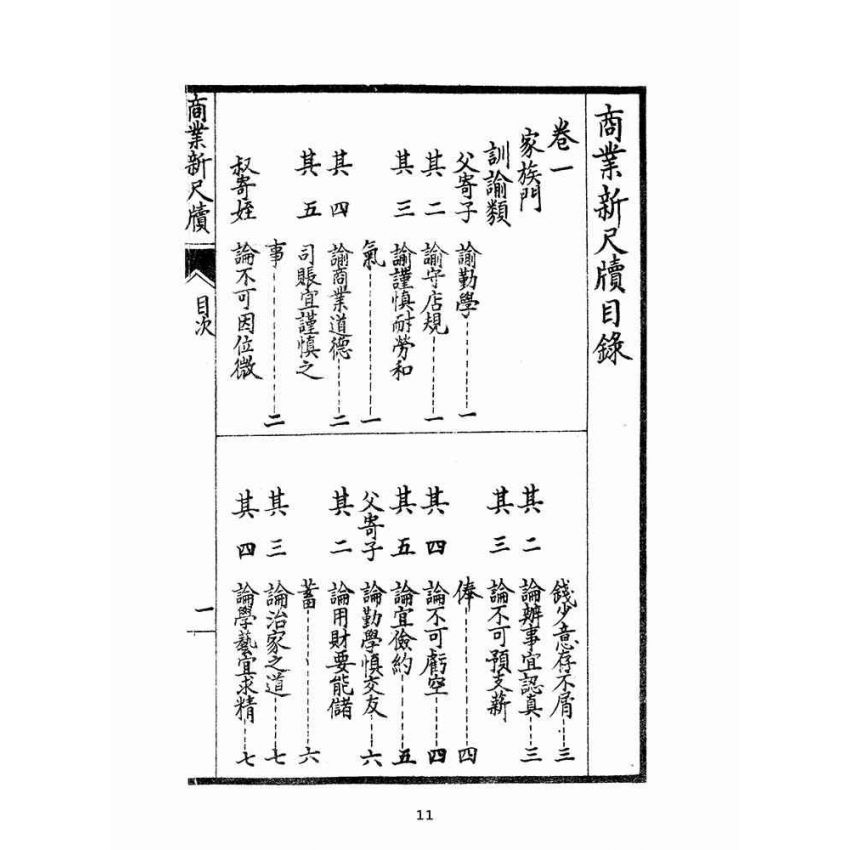 商業新尺牘目錄
卷一
家族門
訓諭類
父寄子 諭勤學 一
其二 諭守店規 一
其三 諭謹慎耐勞和
氣 一
其四 諭商業道德 二
其五 司賬宜謹慎之
事 二
叔寄姪 論不可因位微
錢少意存不屑 三
其二 論辦事宜認真 三
其三 論不可預支薪
俸 四
其四 論不可虧空 四
其五 論宜儉約 五
父寄子 論勤學慎交友 六
其二 論用財要能儲
蓄 六
其三 論治家之道 七
其四 論學藝宜求精 七
商業新尺牘
目次
一
11